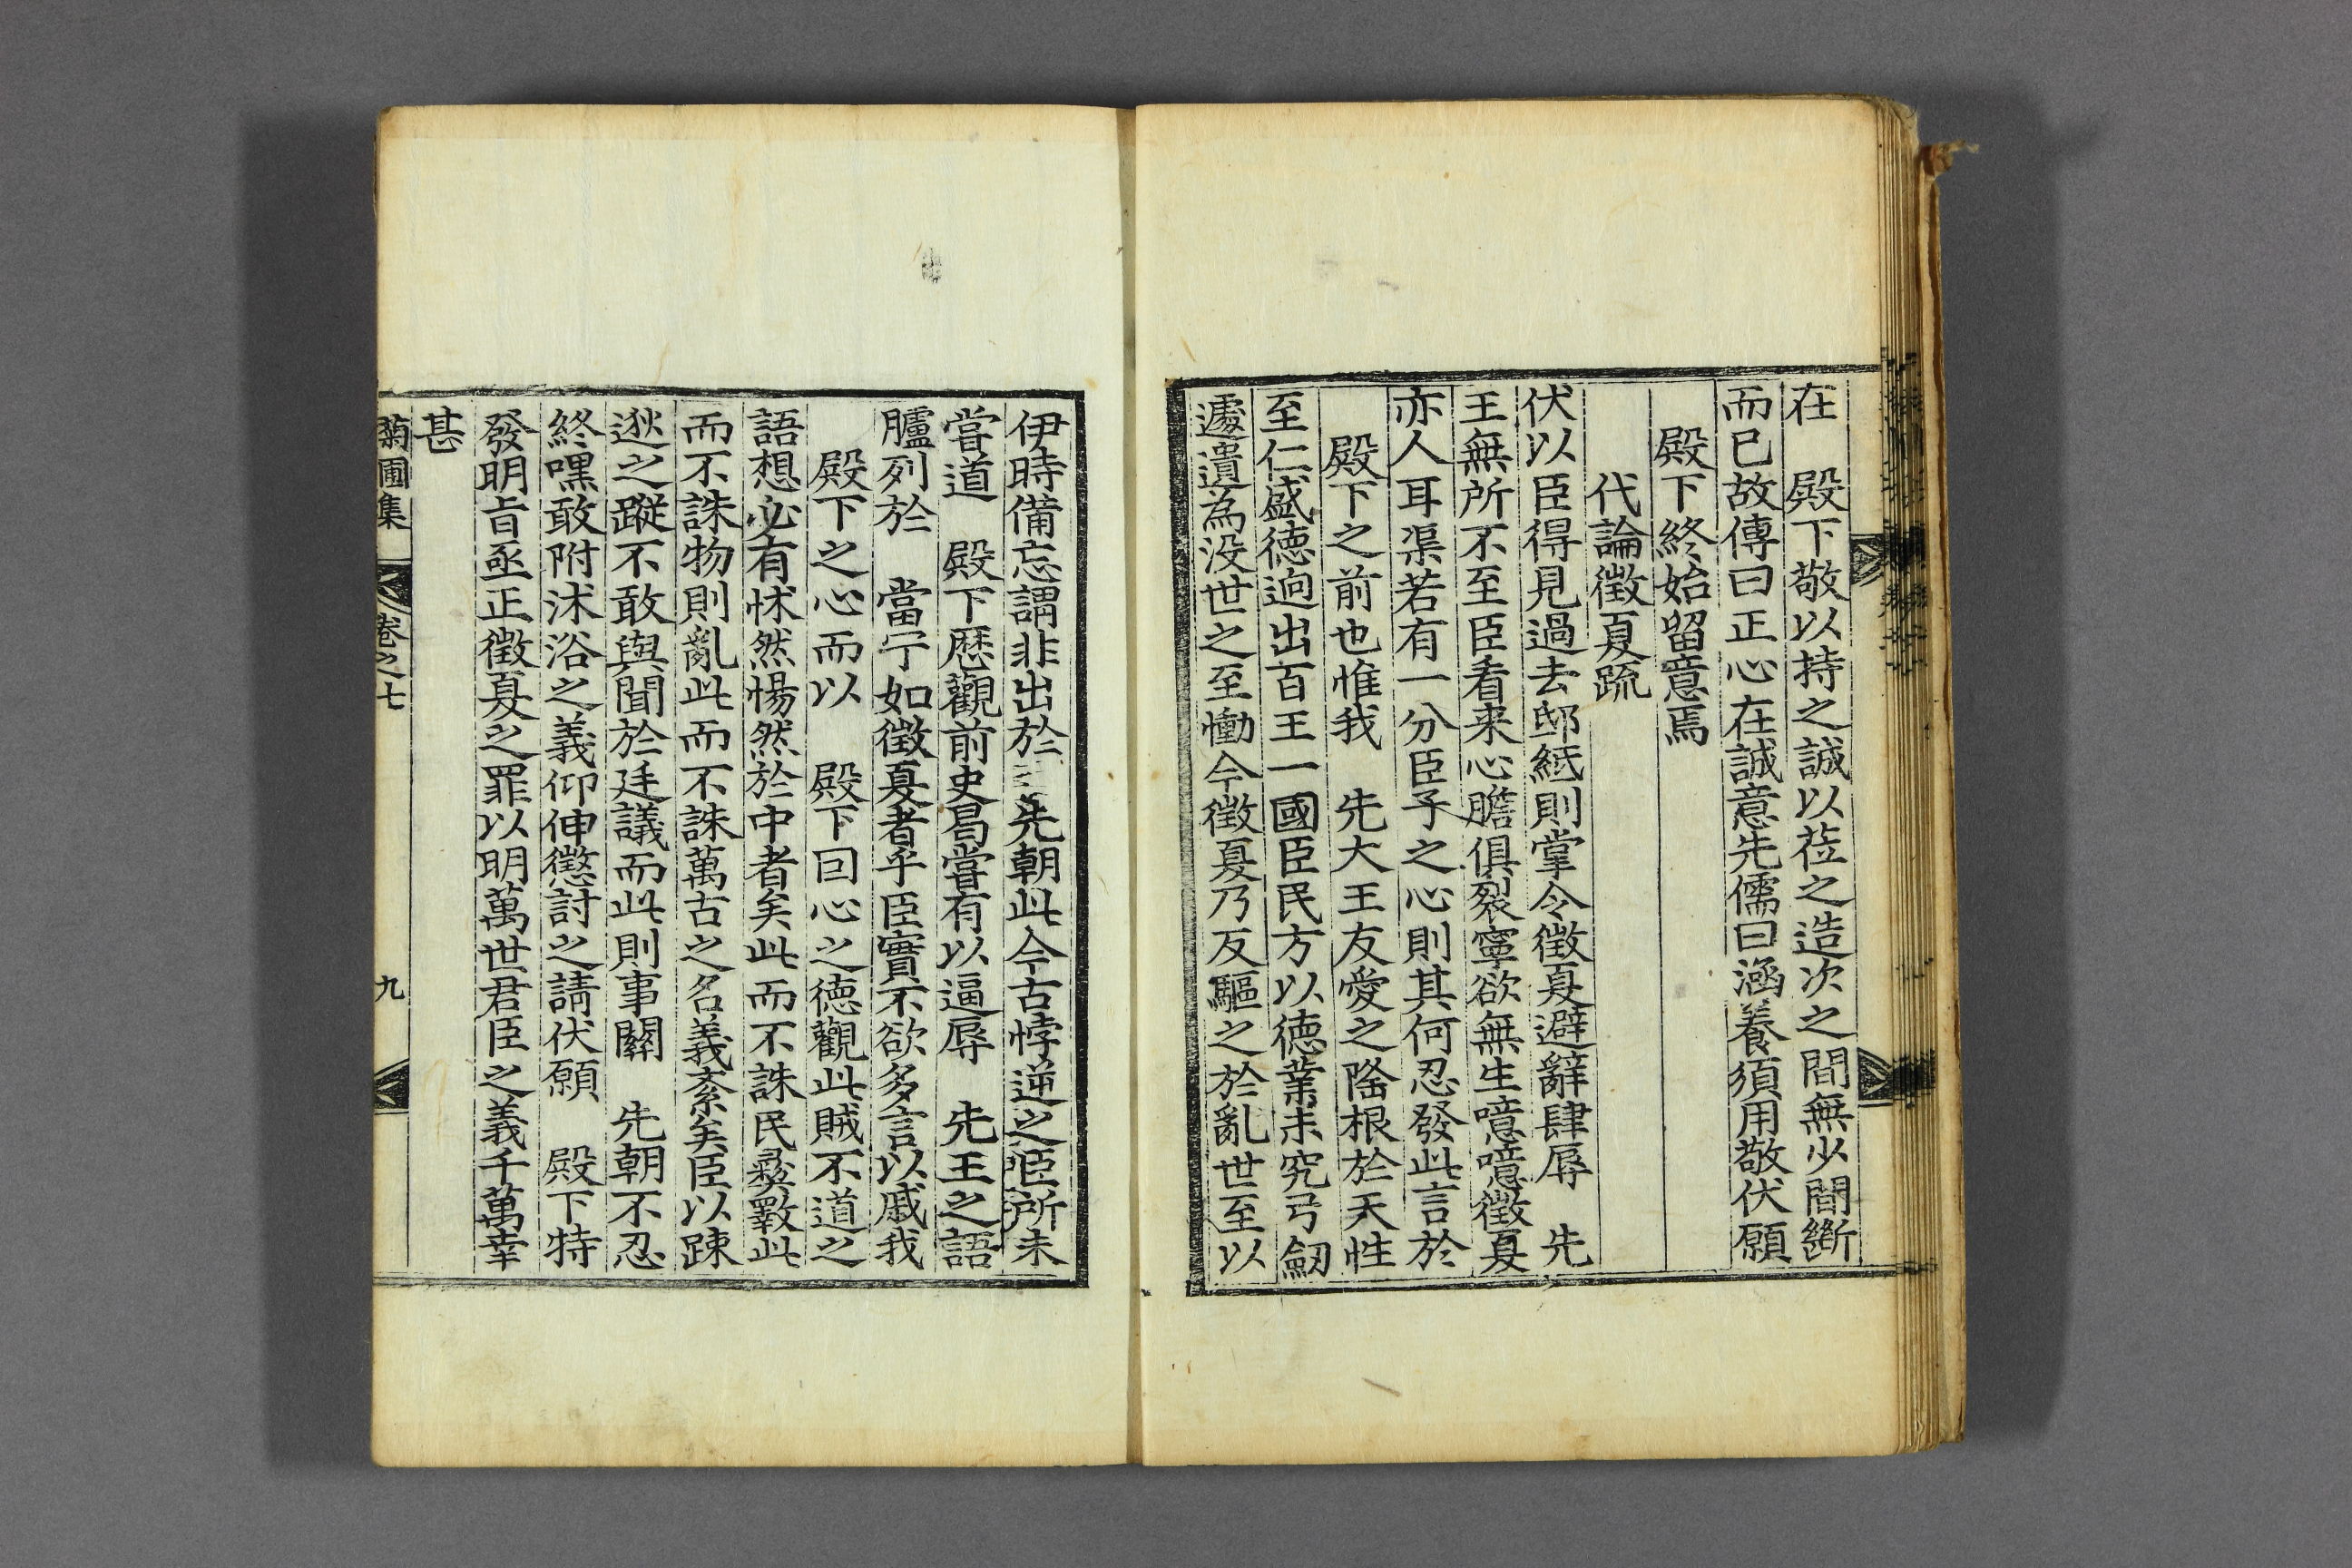 在　殿下敬以持之誠以莅之造次之間無少間斷
而已故傳曰正心在誠意先儒曰涵養須用敬伏願
殿下終始留意焉
代論徵夏疏
伏以臣得見過去邸紙則掌令徵夏避辭肆辱　先
王無所不至臣看来心膽俱裂寧欲無生噫噫徵夏
亦人耳渠若有一分臣子之心則其何忍發此言於
殿下之前也惟我　先大王友愛之隆根於天性
至仁盛德逈出百王一國臣民方以德業未究弓劒
遽遺為没世之至慟今徵夏乃反驅之於亂世至以
伊時備忘謂非出於　先朝此今古悖逆之臣所未
嘗道　殿下歷觀前史曷嘗有以逼辱　先王之語
臚列於　當宁如徵夏者乎臣實不欲多言以戚我
殿下之心而以　殿下回心之德觀此賊不道之
語想必有怵然惕然於中者矣此而不誅民彛斁此
而不誅物則亂此而不誅萬古之名義紊矣臣以踈
逖之蹤不敢與聞於廷議而此則事關　先朝不忍
終嘿敢附沐浴之義仰伸懲討之請伏願　殿下特
發明旨亟正徵夏之罪以明萬世君臣之義千萬幸
甚
菊圃集　卷之七　九